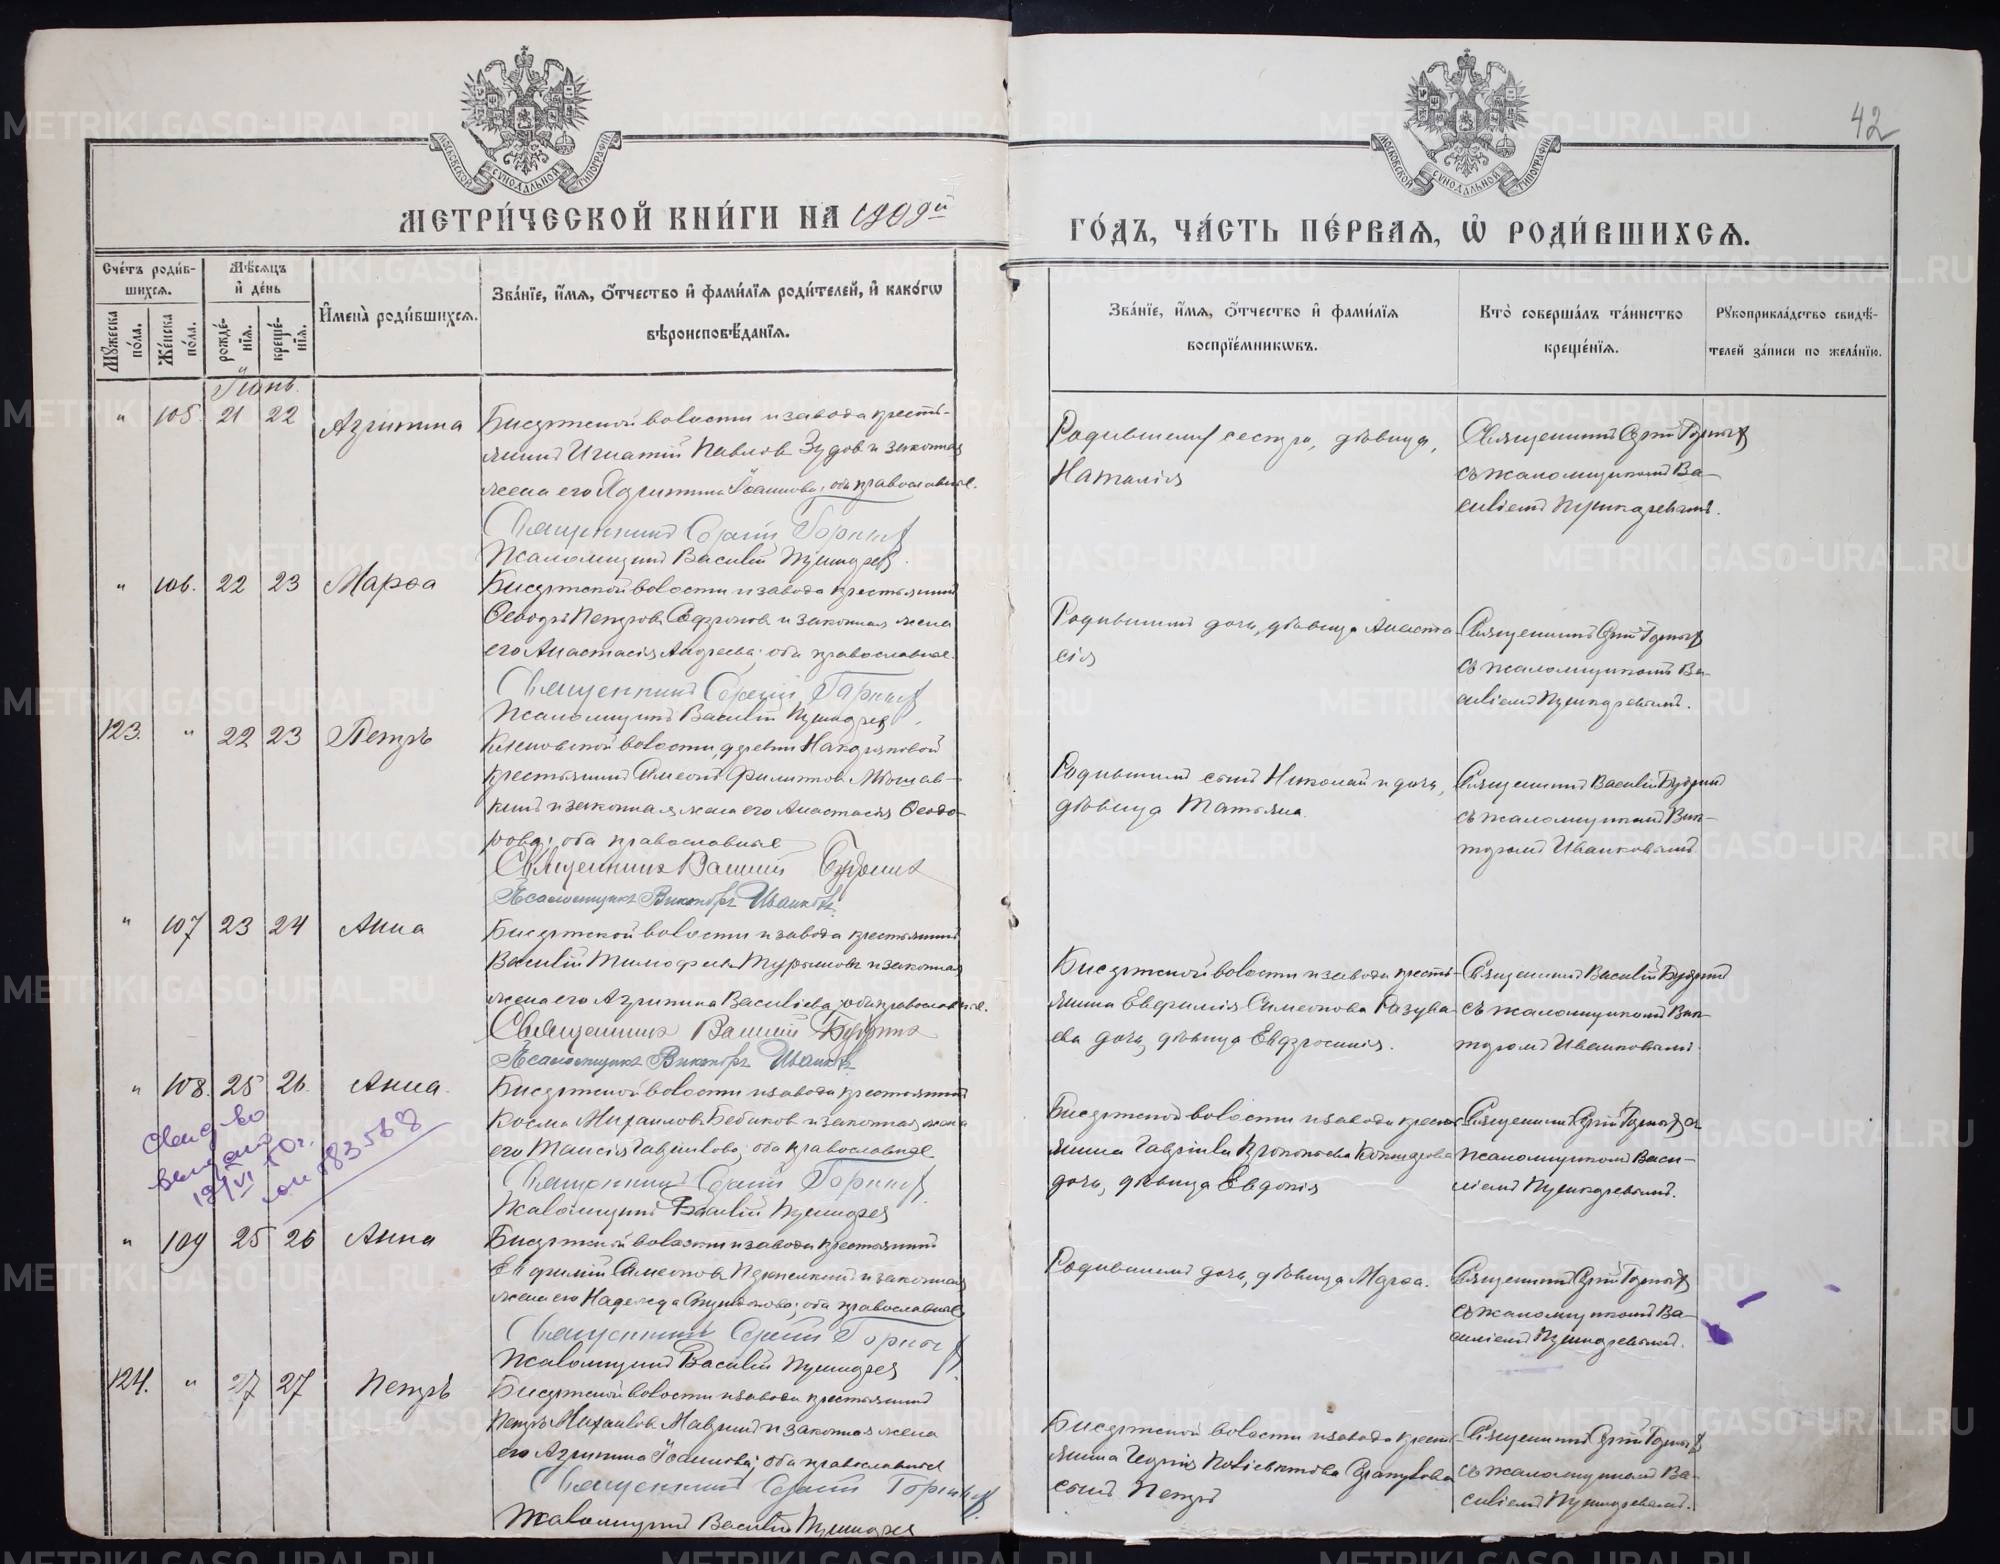 42
МОСКОВСКОЙ СѴНОДАЛЬНОЙ ТИПОГРАФІИ
МОСКОВСКОЙ СѴНОДАЛЬНОЙ ТИПОГРАФІИ
МЕТРИ́ЧЕСКОЙ КНИ́ГИ НА 1909й
ГО́ДЪ, ЧА́СТЬ ПЕ́РВАѦ, Ѡ РОДИ́ВШИХСѦ.
Сче́тъ роди́в-
шихсѧ.
Мꙋ́жеска по́ла.
Же́нска по́ла.
Мѣ́сѧцъ
и҆ де́нь
рожде́-
нїѧ.
креще́-
нїѧ.
И҆мена̀ роди́вшихсѧ.
Зва́нїе, и҆́мѧ, ѻ҆́тчество и҆ фами́лїѧ роди́телей, и҆ како́гѡ
вѣроисповѣ́данїѧ.
Зва́нїе, и҆́мѧ, ѻ҆́тчество и҆ фами́лїѧ
воспрїе́мникѡвъ.
Кто̀ соверша́лъ та́инство
креще́нїѧ.
Рꙋкоприкла́дство свидѣ́-
телей за́писи по жела́нїю.
Іюнь.
" 105. 21 22 Агрипина
Бисертской волости и завода крестья-
нинъ Игнатій Павловъ Зудовъ и законная
жена его Агрипина Іоаннова; оба православные.
Священникъ Сергій Горныхъ
Псаломщикъ Василій
Родившейся сестра, дѣвица,
Наталія
Священникъ Сергій Горныхъ
съ псаломщикомъ Ва-
силіемъ
" 106. 22 23 Марѳа
Бисертской волости и завода крестьянинъ
Ѳеодоръ Петровъ Сафроновъ и законная жена
его Анастасія Андреева; оба православные.
Священникъ Сергій Горныхъ
Псаломщикъ Василій
Родившейся дочь, дѣвица Анаста-
сія
Священникъ Сергій Горныхъ
съ псаломщикомъ Ва-
силіемъ
123. " 22 23 Петръ
Кленовской волости, деревни Накоряковой
крестьянинъ Симеонъ Филиппов
и законная жена его Анастасія Ѳеодо-
рова; оба православные
Священникъ Василій
Псаломщикъ Викторъ Иванковъ
сынъ Николай и дочь,
дѣвица Татьяна.
Священникъ Василій
съ псаломщикомъ Вик-
торомъ Иванковымъ
" 107 23 24 Анна
Бисертской волости и завода крестьянинъ
Василій Тимофеевъ и законная
жена его Агрипина Васильева; оба православные.
Священникъ Василій
Псаломщикъ Викторъ Иванковъ
Бисертской волости и завода кресть-
янина Евфимія Симеонова Разува-
ева дочь, дѣвица Евфросинія.
Священникъ Василій
съ псаломщикомъ Вик-
торомъ Иванковымъ
" 108. 25 26. Анна.
Бисертской волости и завода крестьянинъ
Косма Михаиловъ Бабиковъ и законная жена
его Таисія Гавріилова; оба православные
Священникъ Сергій Горныхъ
Псаломщикъ Василій
Свид-во
выдано
19/VI 50г.
583568
Бисертской волости и завода кресть-
янина Гавріила Прокопьева
дочь, дѣвица Евдокія
Священникъ Сергій Горныхъ съ
псаломщикомъ Васи-
ліемъ
" 109 25 26 Анна
Бисертской волости и завода крестьянинъ
Евфимій Симеоновъ и законная
жена его Надежда; оба православные
Священникъ Сергій Горныхъ
Псаломщикъ Василій
дочь, дѣвица Марѳа.
Священникъ Сергій Горныхъ
съ псаломщикомъ Ва-
силіемъ
124. " 27 27 Петръ
Бисертской волости и завода крестьянинъ
Петръ Михаиловъ и законная жена
его Агрипина Іоаннова; оба православные
Священникъ Сергій Горныхъ
Псаломщикъ Василій
Бисертской волости и завода кресть-
янина
сынъ Петръ
Священникъ Сергій Горныхъ
съ псаломщикомъ Ва-
силіемъ
METRIKI.GASO-URAL.RU